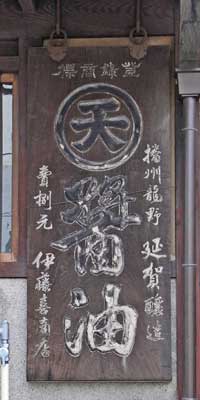 登錄商標
天
播州龍野 延賀釀造
醬油
賣捌元 伊藤喜商店